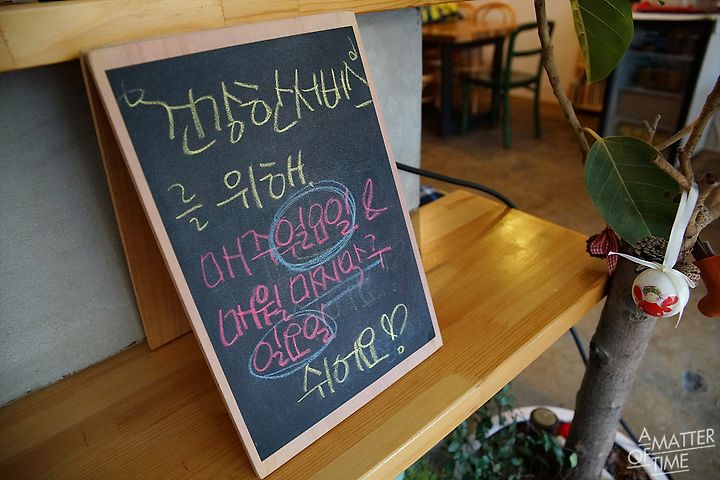 건강한 서비스
를 위해,
매주 월요일 &
매월 마지막 주
일요일
쉬어요♡
A MATTER
OF TIME